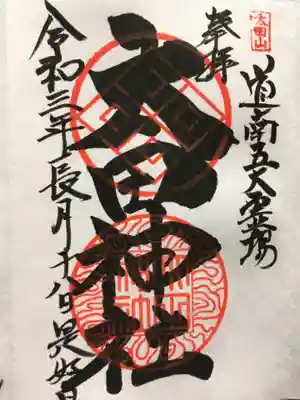 太田山
道南五大霊場
奉拝
太田神社
令和三年長月十八日是好日